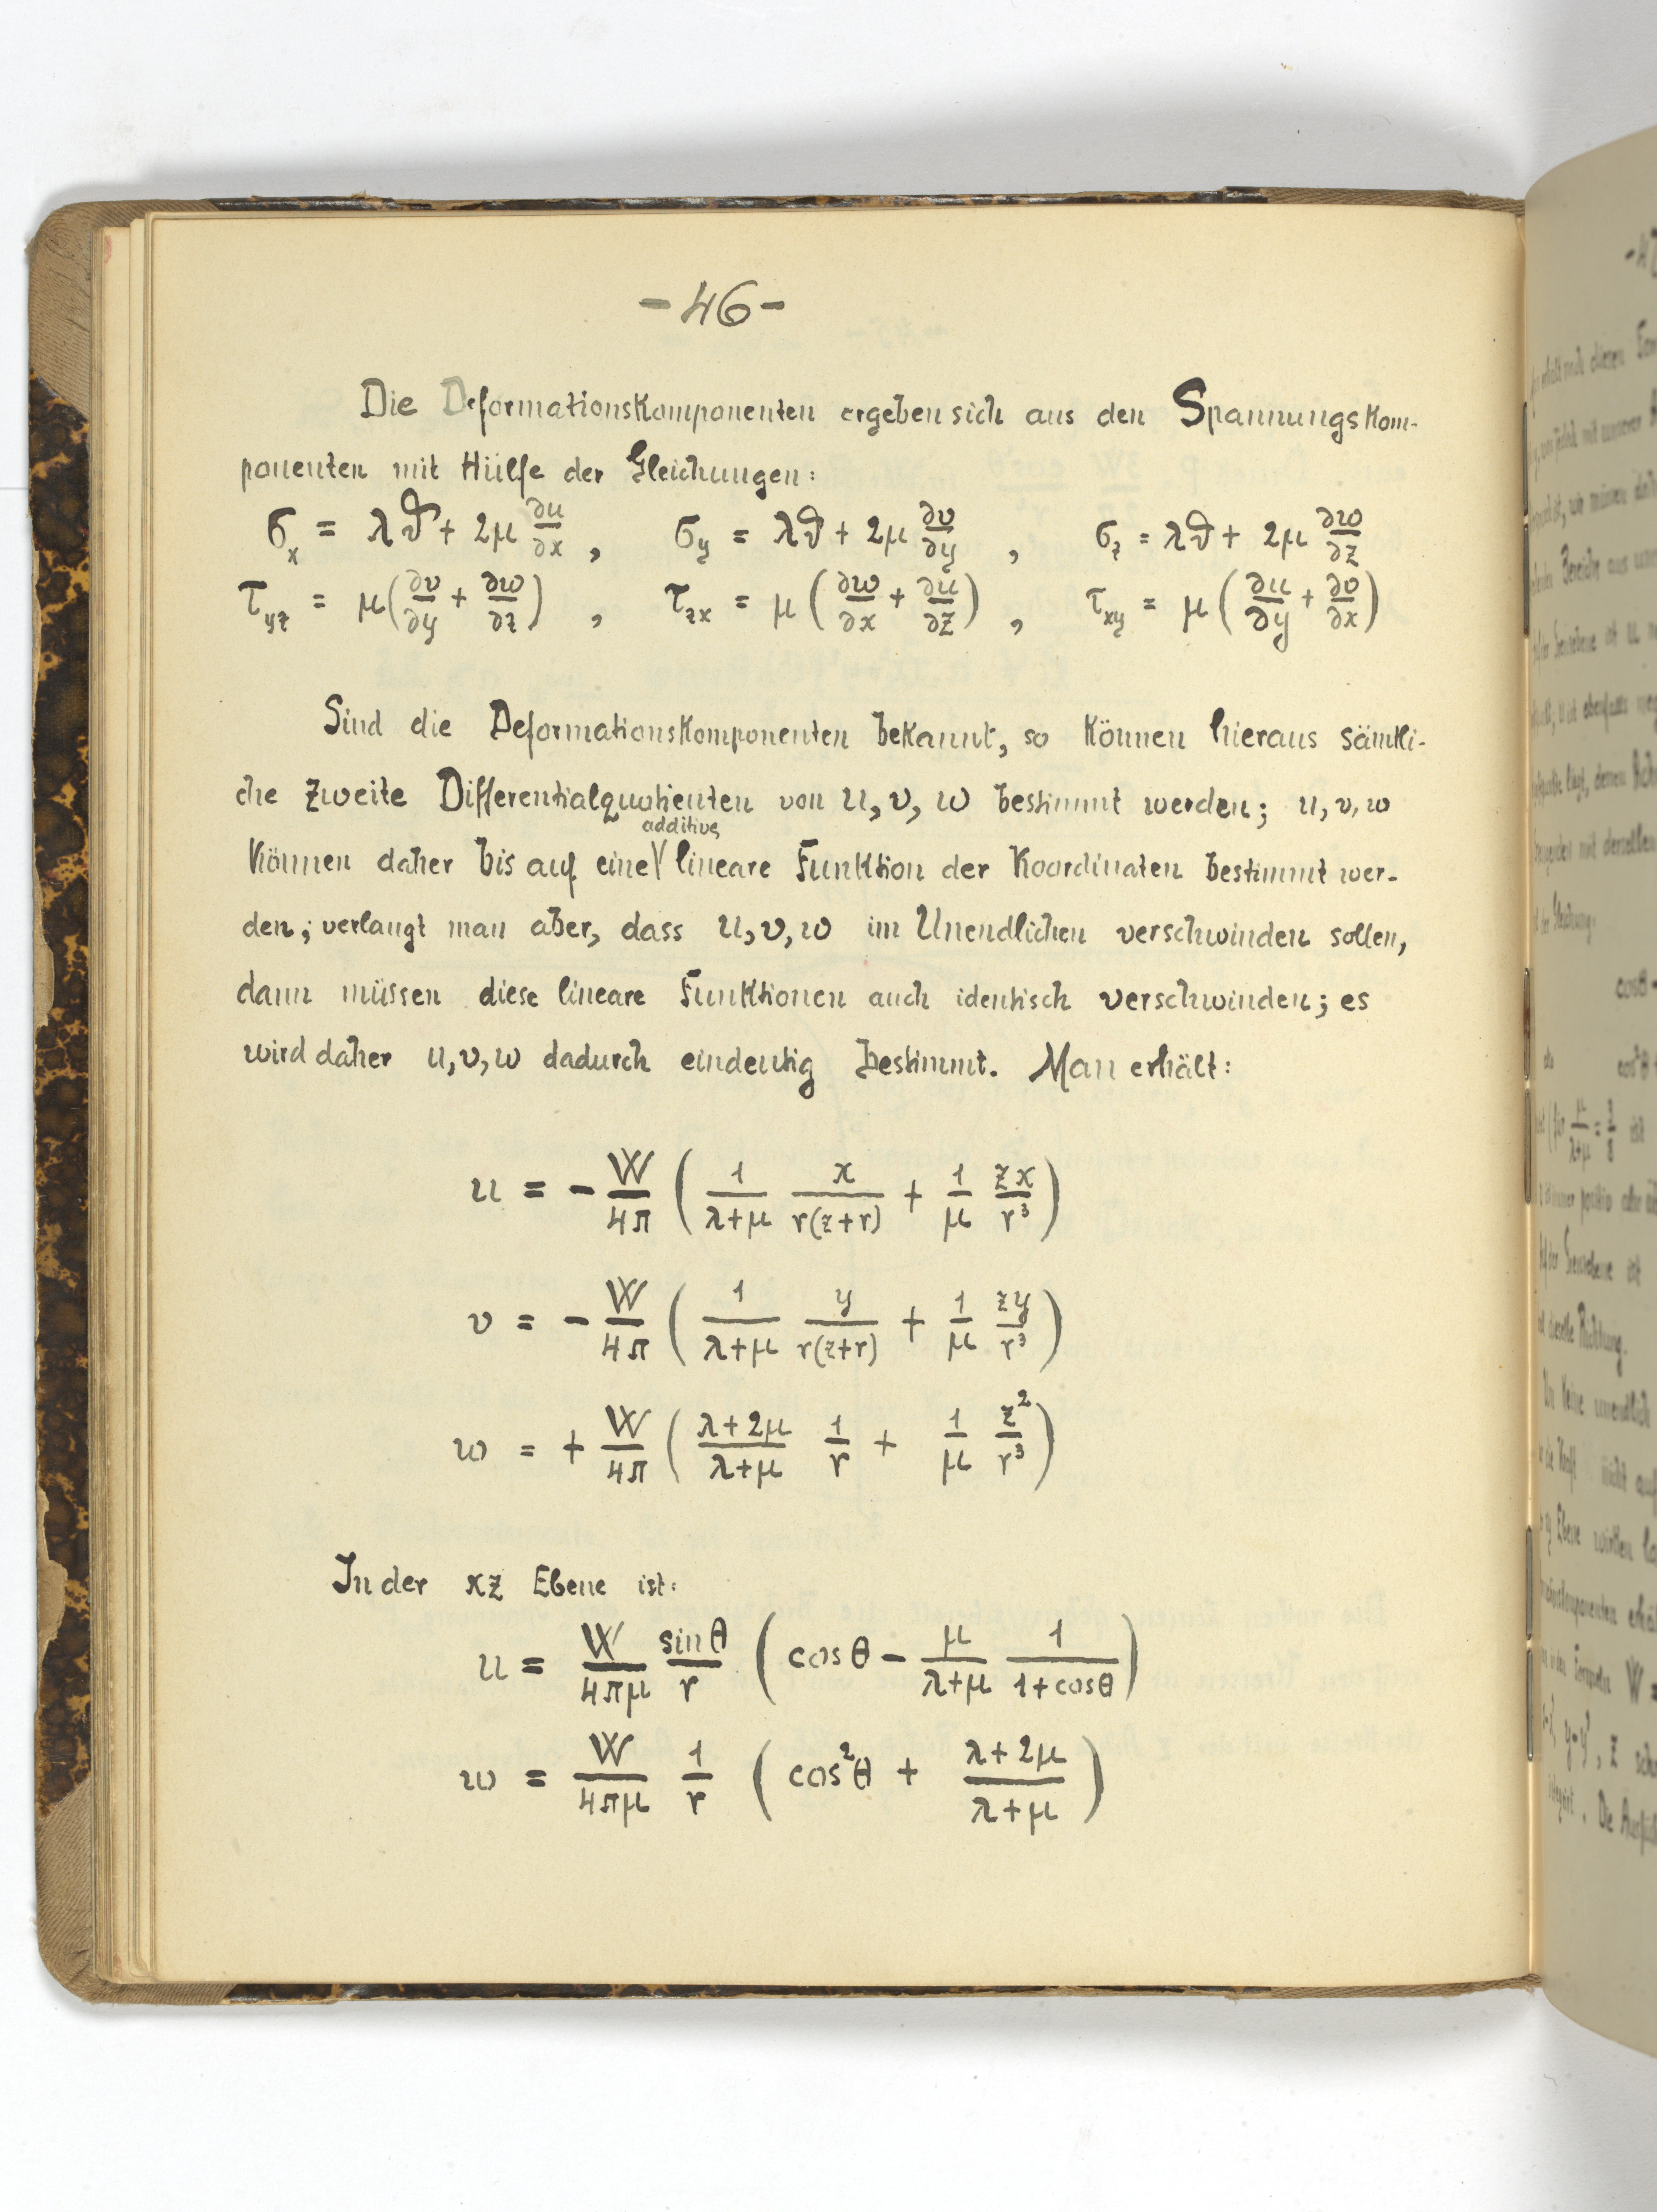 -46-
Die Deformationskomponenten ergeben sich aus den Spannungskom-
ponenten mit Hülfe der Gleichungen:
σ_x = λϑ + 2μ ∂u/∂x , σ_y = λϑ + 2μ ∂v/∂y , σ_z = λϑ + 2μ ∂w/∂z
τ_yz = μ(∂v/∂y + ∂w/∂z) , τ_zx = μ(∂w/∂x + ∂u/∂z) , τ_xy = μ(∂u/∂y + ∂v/∂x)
Sind die Deformationskomponenten bekannt, so können hieraus sämtli-
che zweite Differentialquotienten von u, v, w bestimmt werden; u, v, w
additive
können daher bis auf eine lineare Funktion der Koordinaten bestimmt wer-
den; verlangt man aber, dass u, v, w im Unendlichen verschwinden sollen,
dann müssen diese lineare Funktionen auch identisch verschwinden; es
wird daher u, v, w dadurch eindeutig bestimmt. Man erhält:
u = - W/4π ( 1/(λ+μ) x/(r(z+r)) + 1/μ zx/r³ )
v = - W/4π ( 1/(λ+μ) y/(r(z+r)) + 1/μ zy/r³ )
w = + W/4π ( (λ+2μ)/(λ+μ) 1/r + 1/μ z²/r³ )
In der xz Ebene ist:
u = W/4πμ sinθ/r ( cosθ - μ/(λ+μ) 1/(1+cosθ) )
w = W/4πμ 1/r ( cos²θ + (λ+2μ)/(λ+μ) )